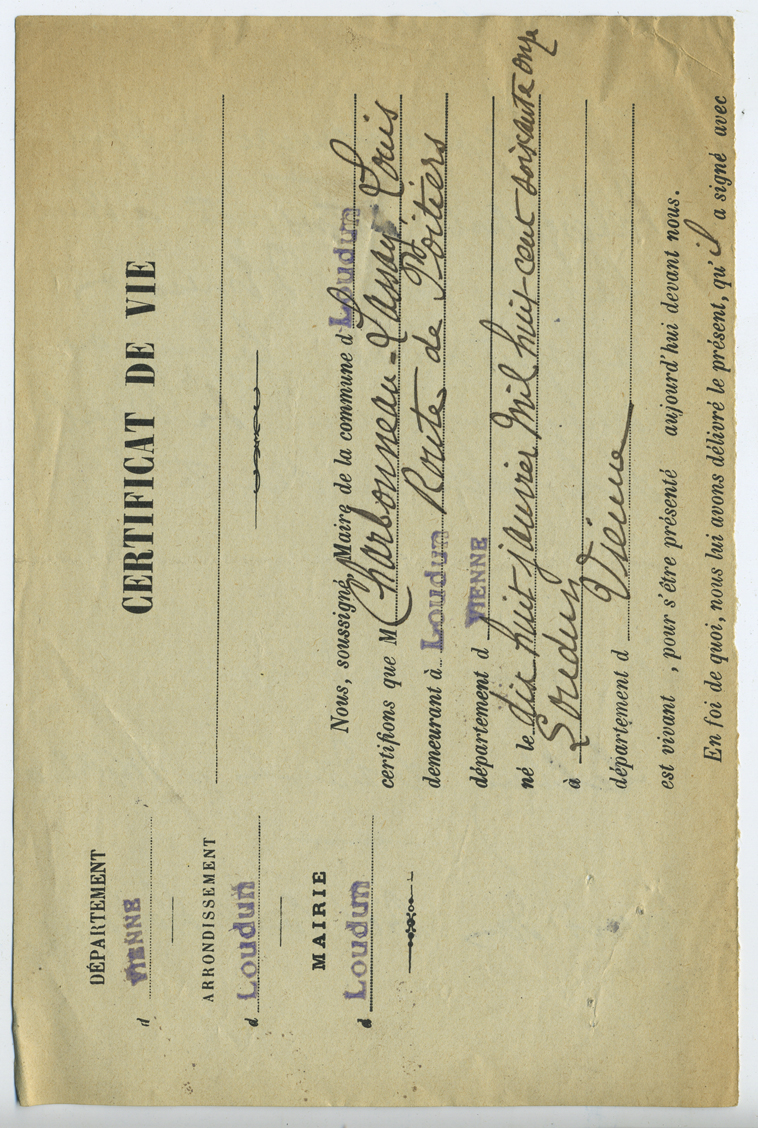 DÉPARTEMENT
d VIENNE
ARRONDISSEMENT
d Loudun
MAIRIE
d Loudun
CERTIFICAT DE VIE
Nous, soussigné, Maire de la commune d Loudun
certifions que M Charbonneau-Lassay, Louis
demeurant à Loudun Route de Poitiers
département d VIENNE
né le dix huit janvier mil huit cent soixante onze
à Loudun
département d Vienne
est vivant , pour s'être présenté aujourd'hui devant nous.
En foi de quoi, nous lui avons délivré le présent, qu'il a signé avec